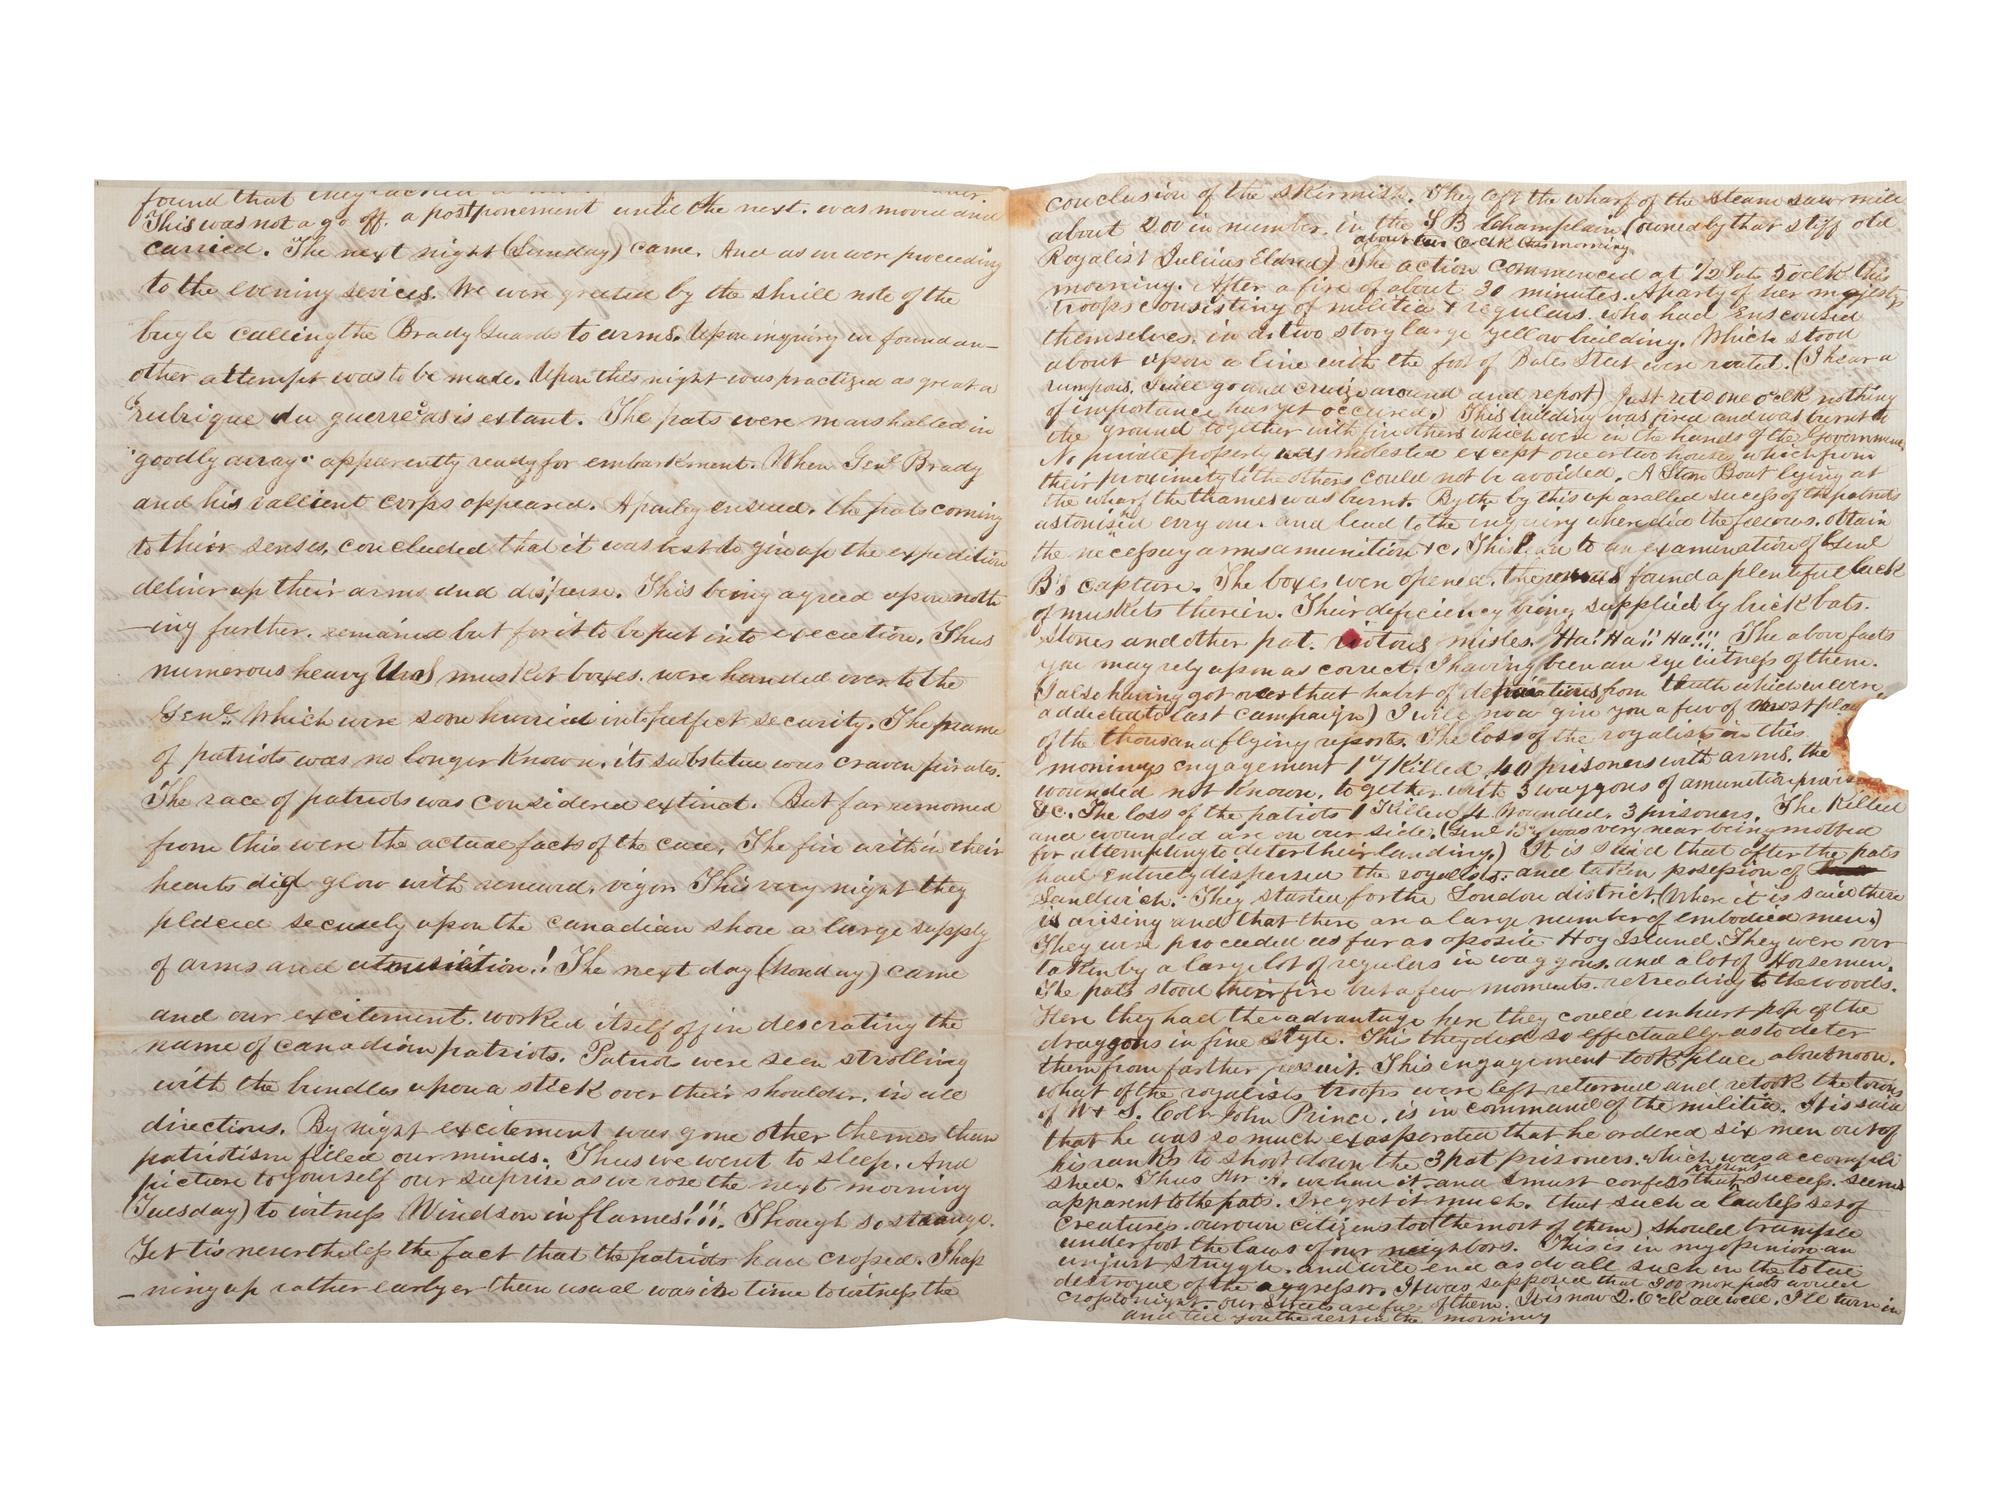 found that they lacked a
This was not a go off. a postponement until the next. was moved and
carried. The next night (Sunday) came. And as we were proceeding
to the evening sevices. We were greeted by the shrill note of the
bugle calling the Brady Guards to arms. Upon inquiry we found an-
other attempt was to be made. Upon this night was practized as great a
"rubrique du guerre" as is extant. The pats were marshalled in
"goodly array" apparently ready for embarkment. When Genl Brady
and his vallient corps appeared. A parley ensued. the pats coming
to thier senses, concluded that it was best to give up the expedition
deliver up their arms and disperse. This being agreed upon noth
-ing further. remained but for it to be put into execution. Thus
numerous heavy musket boxes. were handed over to the
Genl. Which were soon hurried into perfect security. The name
of patriots was no longer known, its substitue was craven pirates.
The race of patriots was considered extinct. But far removed
from this were the actual facts of the case. The fire within their
hearts did glow with renewed. vigor This very night they
placed securely upon the canadian shore a large supply
of arms and amunition.! The next day (Monday) came
and our excitement. worked itself off in descrating the
name of canadian patriots. Patriots were seen strolling
with the bundles upon a stick over their shoulder. in all
directions. By night excitement was gone other themes than
patriotism filled our minds. Thus we went to sleep. And
picture to yourself our suprise as we rose the next morning
(Tuesday) to witness Windsor in flames!!!. Though so strange.
Yet tis nevertheless the fact that the patriots have crossed. I hap
-ning up rather earlyer than usual was in time to witness the
conclusion of the skirmish. They left the wharf of the steam saw mill
about 200 in number. in the S B Champlain (owned by that stiff old
about two O Clk this morning
Royalist Julius Eldred) The action commenced at 1/2 past 5 oclk this
morning. After a fire of about 30 minutes. A party of her majestys
troops consisting of militia & regulars. who had ensconsed
themselves. in a two story large yellow building. Which stood
about upon a line with the foot of Bates Street were routed. (I hear a
rumpuss. I will go and cruize around and report) Just retd one oclk nothing
of importance has yet occured.) This building was fired and was burnt to
the ground together with five others which were in the hands of the Government
No private property was molested except one or two houses which from
their proximity to the others could not be avoided. A Steam Boat lying at
the wharf the thames was burnt. By the by this unparalled sucess of the patriots
astonished evry one. and lead to the inquiry where did the fellows. obtain
the necessay arms amunition &c. This lead to an examination of Genl
B's capture. The boxes were opened. there was found a plentiful lack
of muskets therein. Their deficiency being supplied by brick bats.
stones and other pat. misles. Ha! Ha!! Ha!!! The above facts
you may rely upon as correct. I having been an eye witness of them.
I also having got over that habit of from truth which we were
addicted to last campaign) I will now give you a few of
of the thousand flying reports. The loss of the royalists in this
mornings engagement 17 killed 40 prisoners with arms. the
wounded not known. together with 3 waggons of amunition
&c. The loss of the patriots 1 Killed 4 Wounded. 3 prisoners. The Killed
and wounded are on our side. (Genl By was very near being mobbed
for attempting to deter their landing.) It is said that after the pats
had entirely dispersed the royalists. and taken possession of
Sandwich. They started for the London district. (Where it is said there
is arising and that there are a large number of embodied men.)
They were proceeded as far as oposite Hog Island. They were over
taken by a large lot of regulars in waggons. and a lot of Horsemen.
The pats stood their fire but a few moments. retreating to the woods.
Here they had the advantage here they could unhurt pop of the
draggons in fine style. This they did so effectually as to deter
them from farther pursuit. This engagement took place about noon.
what of the royalists troops were left returned and retook the towns
of W & S. Coln John Prince. is in command of the militia. It is said
that he was so much exasperated that he ordered six men out of
his ranks to shoot down the 3 pat prisoners. which was accompli
present
shed. Thus Mr A. we have it. and I must confess that success. seems
apparent to the pats. I regret it much. that such a lawless set of
creatures. our own citizens too (the most of them) should trample
underfoot the laws of our neighbors. This is in my opinion an
unjust struggle. and will end as do all such in the total
destroyal of the aggressor. It was supposed that 300 more pats would
cross to night. our streets are full of them. It is now 2. Oclk all well. I'll turn in
and tell you the rest in the morning